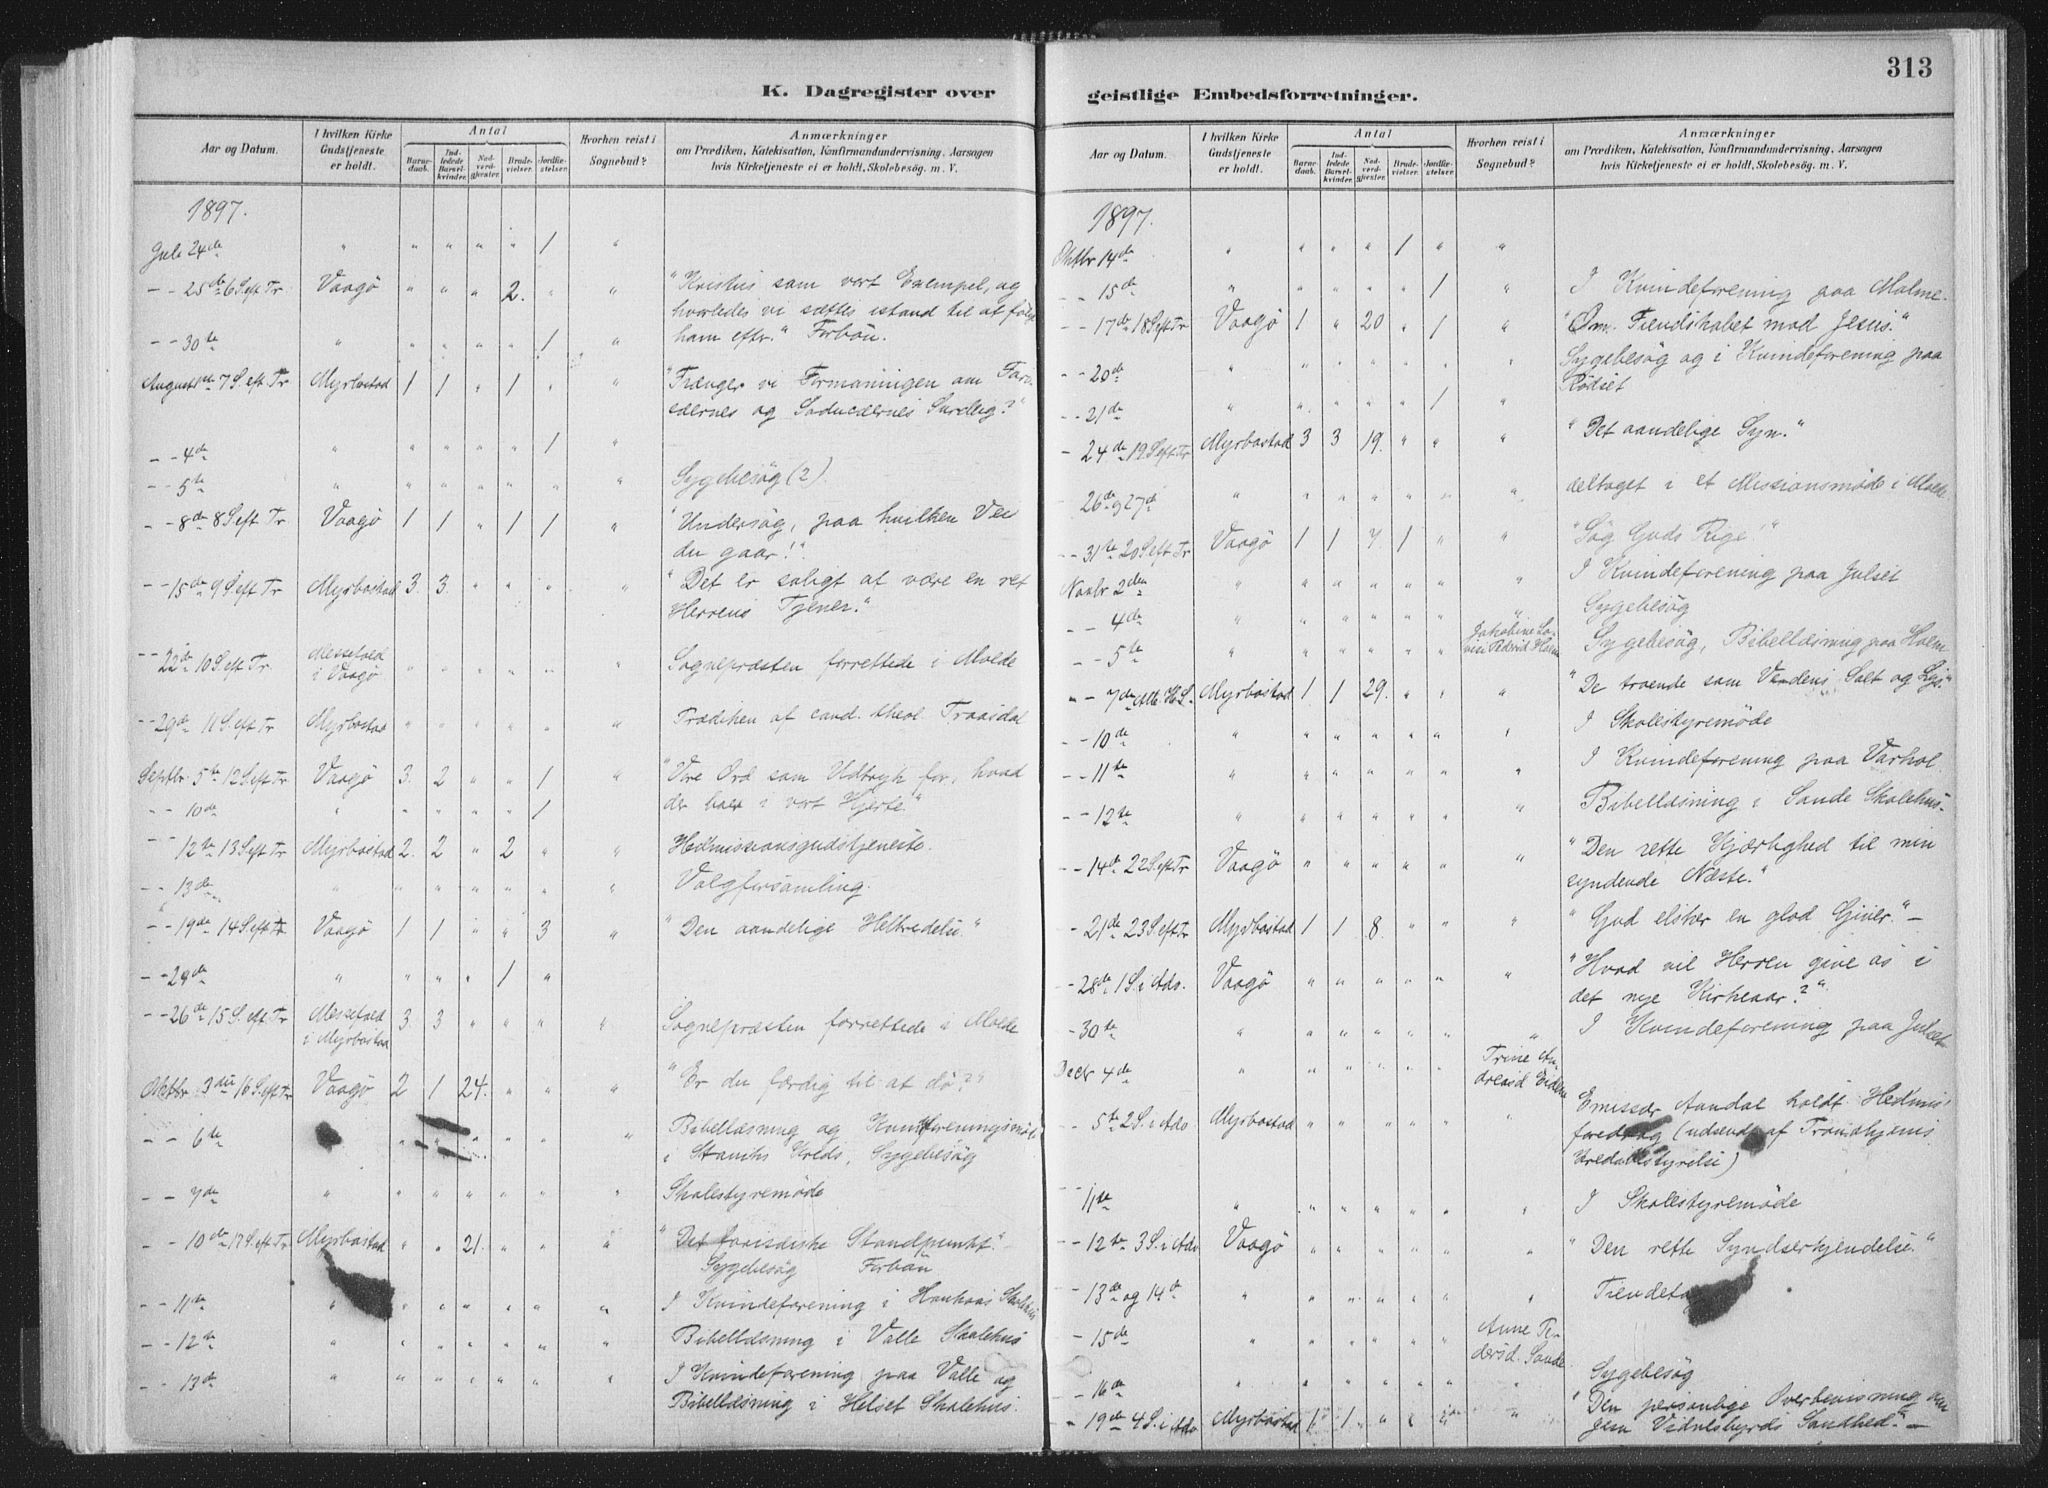 313
K. Dagregister over
geistlige Embedsforretninger.
Aar og Datum.
I hvilken Kirke Gudstjeneste er holdt.
Antal
Barnedaab.
Indledede Barselkvinder.
Nadverdgjester.
Brudevielser.
Jordfæstelser.
Hvorhen reist i Sognebud?
Anmærkninger
om Prædiken, Katekisation, Konfirmandundervisning, Aarsagen
hvis Kirketjeneste ei er holdt, Skolebesög. m. V.
1897.
Juli 24de " " " " " 1 "
- - 25de 6 S. eft Tr. Vaagö " " " 2. " " "Kristus som vort Exempel, og
hvorledes vi sættes istand til at følge
- - 30te " " " " " 1 " ham efter." Forbön.
August 1ste 7 S. eft. Tr Myrbostad 1 1 " 1 " " "Trænger vi Formaningen om Fari-
sæernes og Saducæernes Surdeig?"
- - 4de " " " " " 1 "
- - 5te " " " " " " " Sygebesög (2).
- - 8de 8 S eft Tr Vaagö 1 1 " 1 1 " "Undersög, paa hvilken Vei
du gaar!"
- - 15de 9 S eft Tr Myrbostad 3. 3. " " " " "Det er saligt at være en ret
Herrens Tjener."
- - 22de 10 S. eft Tr. Messefald i Vaagö " " " " " " Sognepræsten forrettede i Molde
- - 29de 11 S eft Tr Myrbostad " " " " " " Prædiken af cand. theol. Traasdal
Septbr 5te 12 S eft Tr Vaagö 3. 2 " " 1 " "Vore Ord som Udtryk for, hvad
- - 10de " " " " " 1 der boer i vort Hjerte."
- - 12te 13 S eft Tr Myrbostad 2. 2 " 2 " " Hedmissionsgudstjeneste.
- - 13de " " " " " " " Valgforsamling.
- - 19de 14 S eft Tr Vaagö 1 1 " " 3 " "Den aandelige Helbredelse."
- - 24de " " " " 1 "
- - 26de 15 S. eft Tr Messefald i Myrbostad 3 3 " " " " Sognepræsten forrettede i Molde
Oktbr 3die 16 S eft Tr Vaagö 2 1 24. " " " "Er du færdig til at dö?"
- - 6te " " " " " " Bibellæsning og Kvindforeningsmöde
i Kreds, Sygebesög
- - 7de " " " " " " " Skolestyremöde
- - 10de 17 S. eft Tr Myrbostad " " 21. " " " "Det farisæiske Standpunkt."
Sygebesög Forbön
- - 11te " " " " " " " I Kvindeforening i Skolehus
- - 12te " " " " " " " Bibellæsning i Valle Skolehus
- - 13de " " " " " " " I Kvindeforening paa Valle og
Bibellæsning i Helset Skolehus.
Aar og Datum.
I hvilken Kirke Gudstjeneste er holdt.
Antal
Barnedaab.
Indledede Barselkvinder.
Nadverdgjester.
Brudevielser.
Jordfæstelser.
Hvorhen reist i Sognebud?
Anmærkninger
om Prædiken, Katekisation, Konfirmandundervisning, Aarsagen
hvis Kirketjeneste ei er holdt, Skolebesög. m. V.
1897.
Oktbr 14de " " " " 1 " "
- - 15de " " " " " 1 " I Kvindeforening paa Malme.
- - 17de 18 S eft Tr Vaagö 1 " 20 " 1 " "Om Fiendskabet mod Jesus."
- - 20de " " " " " " " Sygebesög og i Kvindeforening paa
Rödset
- - 21de " " " " " 1 "
- - 24de 19 S eft Tr Myrbostad 3 3 19. " " " "Det aandelige Syn."
- 26de og 27de " " " " " " " deltaget i et Missionsmöde i Molde.
- - 31te 20 S eft Tr Vaagö 1 1 7 1 " " "Søg Guds Rige!"
Novbr 2den " " " " " " " I Kvindeforening paa Julset
- - 4de " " " " " " " Sygebesög
- - 5te " " " " " " Jakobine Lo- Sygebesög, Bibellæsning paa Holm
- - 7de Myrbostad 1 1 29. " " " "De troende som Verdens Salt og Lys."
- - 10de " " " " " " " I Skolestyremöde
- - 11te " " " " " " " I Kvindeforening paa Varhol.
- - 12te " " " " " " " Bibellæsning i Sande Skolehus.
- - 14de 22 S eft Tr Vaagö " " " " " " "Den rette Kjærlighed til min
syndende Næste."
- 21de 23 S eft Tr Myrbostad 1 1 8. " " " "Gud elsker en glad Giver." -
- 28de 1 S. i Adv. Vaagö " " " " " " "Hvad vil Herren give os i
det nye Kirkeaar?"
- 30te " " " " " " " I Kvindeforening paa Julset
Decbr 4de " " " " " " Trine An-
dreasd Eidem
- - 5te 2 S. i Adv Myrbostad " " " " " " Emissær Aandal holdt Hedmis.
foredrag (udsendt af Trondhjems
Kredsbestyrelse)
- - 11te " " " " " " " I Skolestyremöde
- - 12te 3 S. i Adv Vaagö " " " " " " "Den rette Syndserkjendelse."
- - 13de og 14de " " " " " " "
- 15de " " " " " " Anne Pe-
dersd. Sande
- 16de " " " " " " " Sygebesög
- 19de 4 S. i Adv Myrbostad 1 1 " " " " "Den personlige Overbevisning om
Vidnesbyrds Sandhed." -